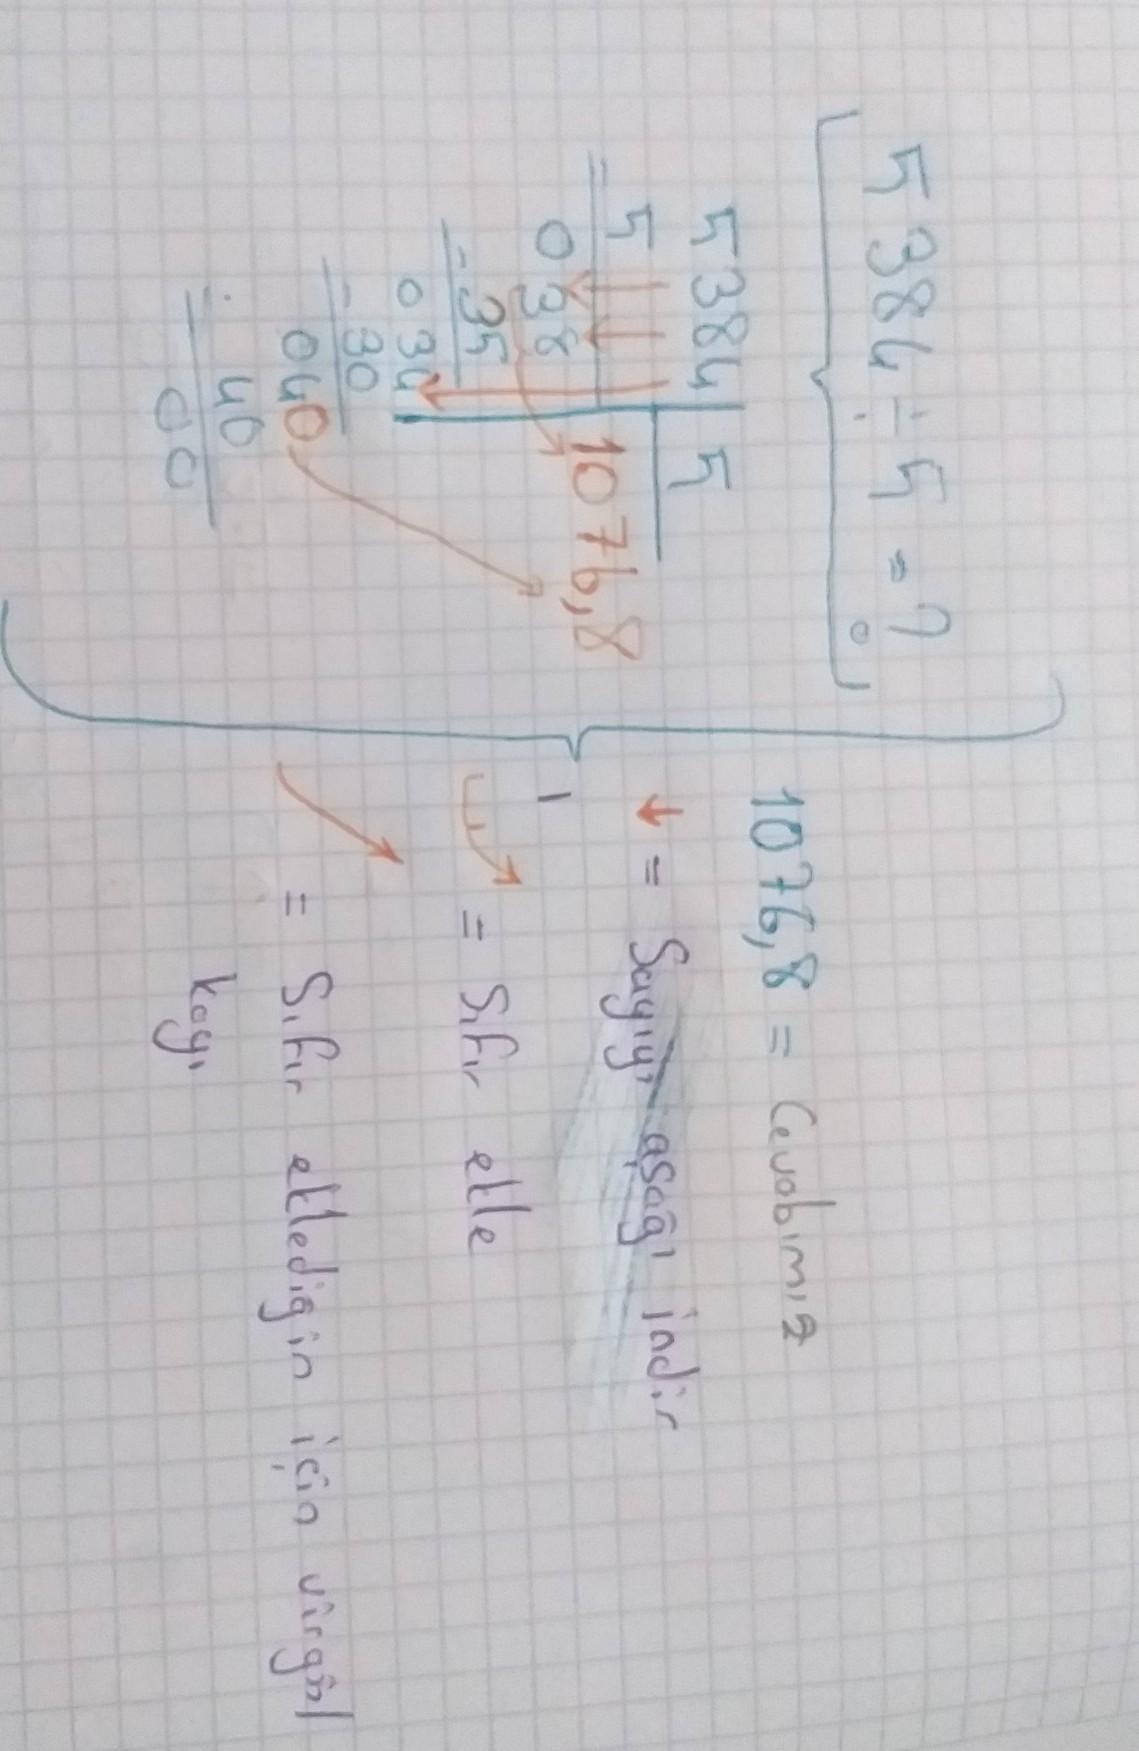 5384 ÷ 5 = ?
5384 5
- 5 1076,8
038
- 35
034
- 30
040
- 40
00
1076,8 = Cevabımız
↓ = Sayıyı aşağı indir
= Sıfır ekle
= Sıfır eklediğin için virgül
koy.